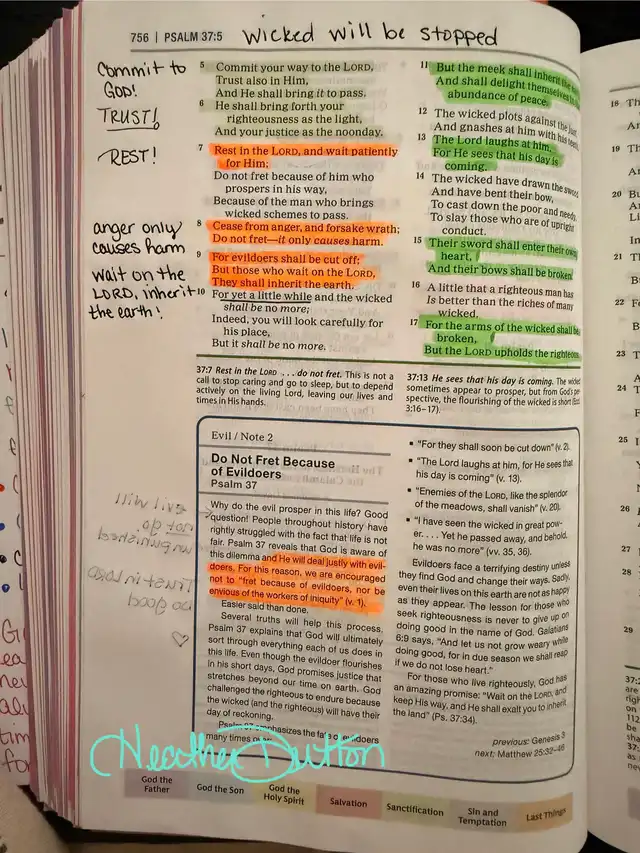 756 | PSALM 37:5
Wicked will be stopped
Commit to
GOD!
TRUST!
REST!
anger only
causes harm
wait on the
LORD, inherit
the earth!
5 Commit your way to the LORD,
Trust also in Him,
And He shall bring it to pass.
6 He shall bring forth your
righteousness as the light,
And your justice as the noonday.
7 Rest in the LORD, and wait patiently
for Him;
Do not fret because of him who
prospers in his way,
Because of the man who brings
wicked schemes to pass.
8 Cease from anger, and forsake wrath;
Do not fret—it only causes harm.
9 For evildoers shall be cut off;
But those who wait on the LORD,
They shall inherit the earth.
10 For yet a little while and the wicked
shall be no more;
Indeed, you will look carefully for
his place,
But it shall be no more.
11 But the meek shall inherit the
And shall delight themselves in
abundance of peace.
12 The wicked plots against the just,
And gnashes at him with his teeth.
13 The Lord laughs at him,
For He sees that his day is
coming.
14 The wicked have drawn the sword
And have bent their bow,
To cast down the poor and needy,
To slay those who are of upright
conduct.
15 Their sword shall enter their own
heart,
And their bows shall be broken.
16 A little that a righteous man has
Is better than the riches of many
wicked.
17 For the arms of the wicked shall be
broken,
But the LORD upholds the righteous.
37:7 Rest in the LORD . . . do not fret. This is not a
call to stop caring and go to sleep, but to depend
actively on the living Lord, leaving our lives and
times in His hands.
37:13 He sees that his day is coming. The wicked
sometimes appear to prosper, but from God's per-
spective, the flourishing of the wicked is short (
3:16–17).
Evil / Note 2
Do Not Fret Because
of Evildoers
Psalm 37
Why do the evil prosper in this life? Good
question! People throughout history have
rightly struggled with the fact that life is not
fair. Psalm 37 reveals that God is aware of
this dilemma and He will deal justly with evil-
doers. For this reason, we are encouraged
not to "fret because of evildoers, nor be
envious of the workers of iniquity" (v. 1).
Easier said than done.
Several truths will help this process.
Psalm 37 explains that God will ultimately
sort through everything each of us does in
this life. Even though the evildoer flourishes
in his short days, God promises justice that
stretches beyond our time on earth. God
challenged the righteous to endure because
the wicked (and the righteous) will have their
day of reckoning.
Psalm 37 emphasizes the fate of evildoers
many times over:
▪ "For they shall soon be cut down" (v. 2).
▪ "The Lord laughs at him, for He sees that
his day is coming" (v. 13).
▪ "Enemies of the LORD, like the splendor
of the meadows, shall vanish" (v. 20).
▪ "I have seen the wicked in great pow-
er. . . . Yet he passed away, and behold,
he was no more" (vv. 35, 36).
Evildoers face a terrifying destiny unless
they find God and change their ways. Sadly,
even their lives on this earth are not as happy
as they appear. The lesson for those who
seek righteousness is never to give up on
doing good in the name of God. Galatians
6:9 says, "And let us not grow weary while
doing good, for in due season we shall reap
if we do not lose heart."
For those who live righteously, God has
an amazing promise: "Wait on the LORD, and
keep His way, and He shall exalt you to inherit
the land" (Ps. 37:34).
previous: Genesis 3
next: Matthew 25:32–46
Heather Dutton
God the
Father
God the Son
God the
Holy Spirit
Salvation
Sanctification
Sin and
Temptation
Last Things
18
19
20
21
22
23
24
25
26
27
28
29